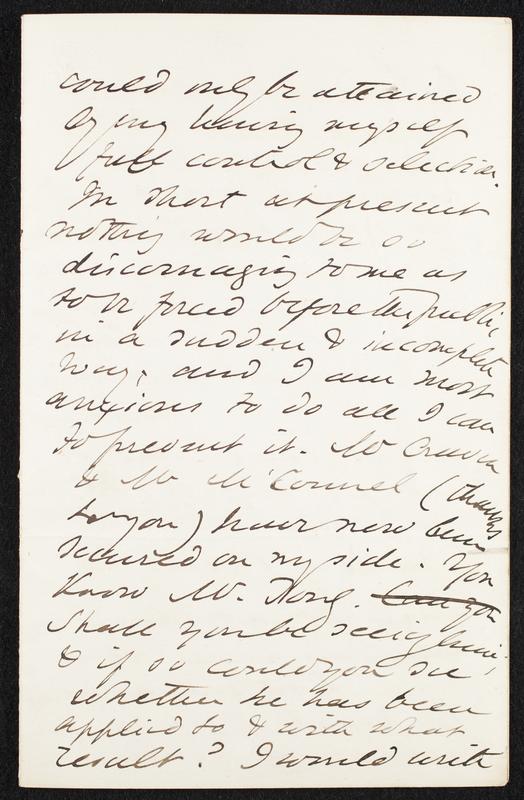 could only be attained
by my having myself
full control & selection.
In short at present
nothing would be so
discouraging to me as
to be forced before the public
in a sudden & incomplete
way, and I am most
anxious to do all I can
to prevent it. Mr Craven
& Mr McConnel (thanks
to you) have now been
secured on my side. You
know Mr. Hong. Can you
Shall you be seeing him;
& if so could you see
whether he has been
applied to & with what
result? I would write